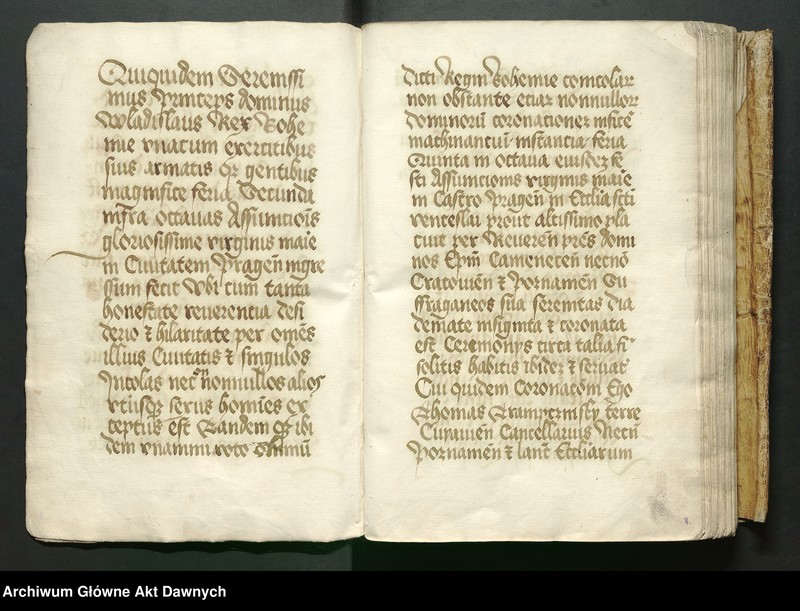 Quiquidem Serenissi
mus Princeps dominus
Wladislaus Rex Bohe
mie vnacum exercitibus
suis armatis et gentibus
magnifice feria Secunda
infra octauas Assumcionis
gloriosissime virginis maie
in Ciuitatem Pragen̄ ingre
ssum fecit Vbi cum tanta
honestate reuerentia desi
derio et hilaritate per om̄es
illius Ciuitatis et singulos
Incolas necn̄ nonnullos alios
vtriusqz sexus homīes ex
ceptus est Tandem qz ibi
dem vnanimi voto om̄nīū
dicti Regni Bohemie comcolar
non obstante etiaz nonnullor
dominorū coronationez
machinantiuī instancia feria
Quinta in octaua eiusdez fe
sti Assumcionis virginis maie
in Castro Pragen̄ in Ecclia scti
venceslai prout altissimo pla
cuit per Reueren̄ pr̄es domi
nos Ep̄m Cameneceñ necnō
Cracouien̄ et Poznamen̄ Su
ffraganeos sua serenitas dia
demate insignita et coronata
est Ceremonys circa talia fi
solitis habitis ibidez et seruat
Cui quidem Coronacōm Ego
Thomas Trampczinsky terre
Cuiauien̄ Cancellarius Necn̄
Poznamen̄ et lanc̄ Eccliarum
Archiwum Główne Akt Dawnych